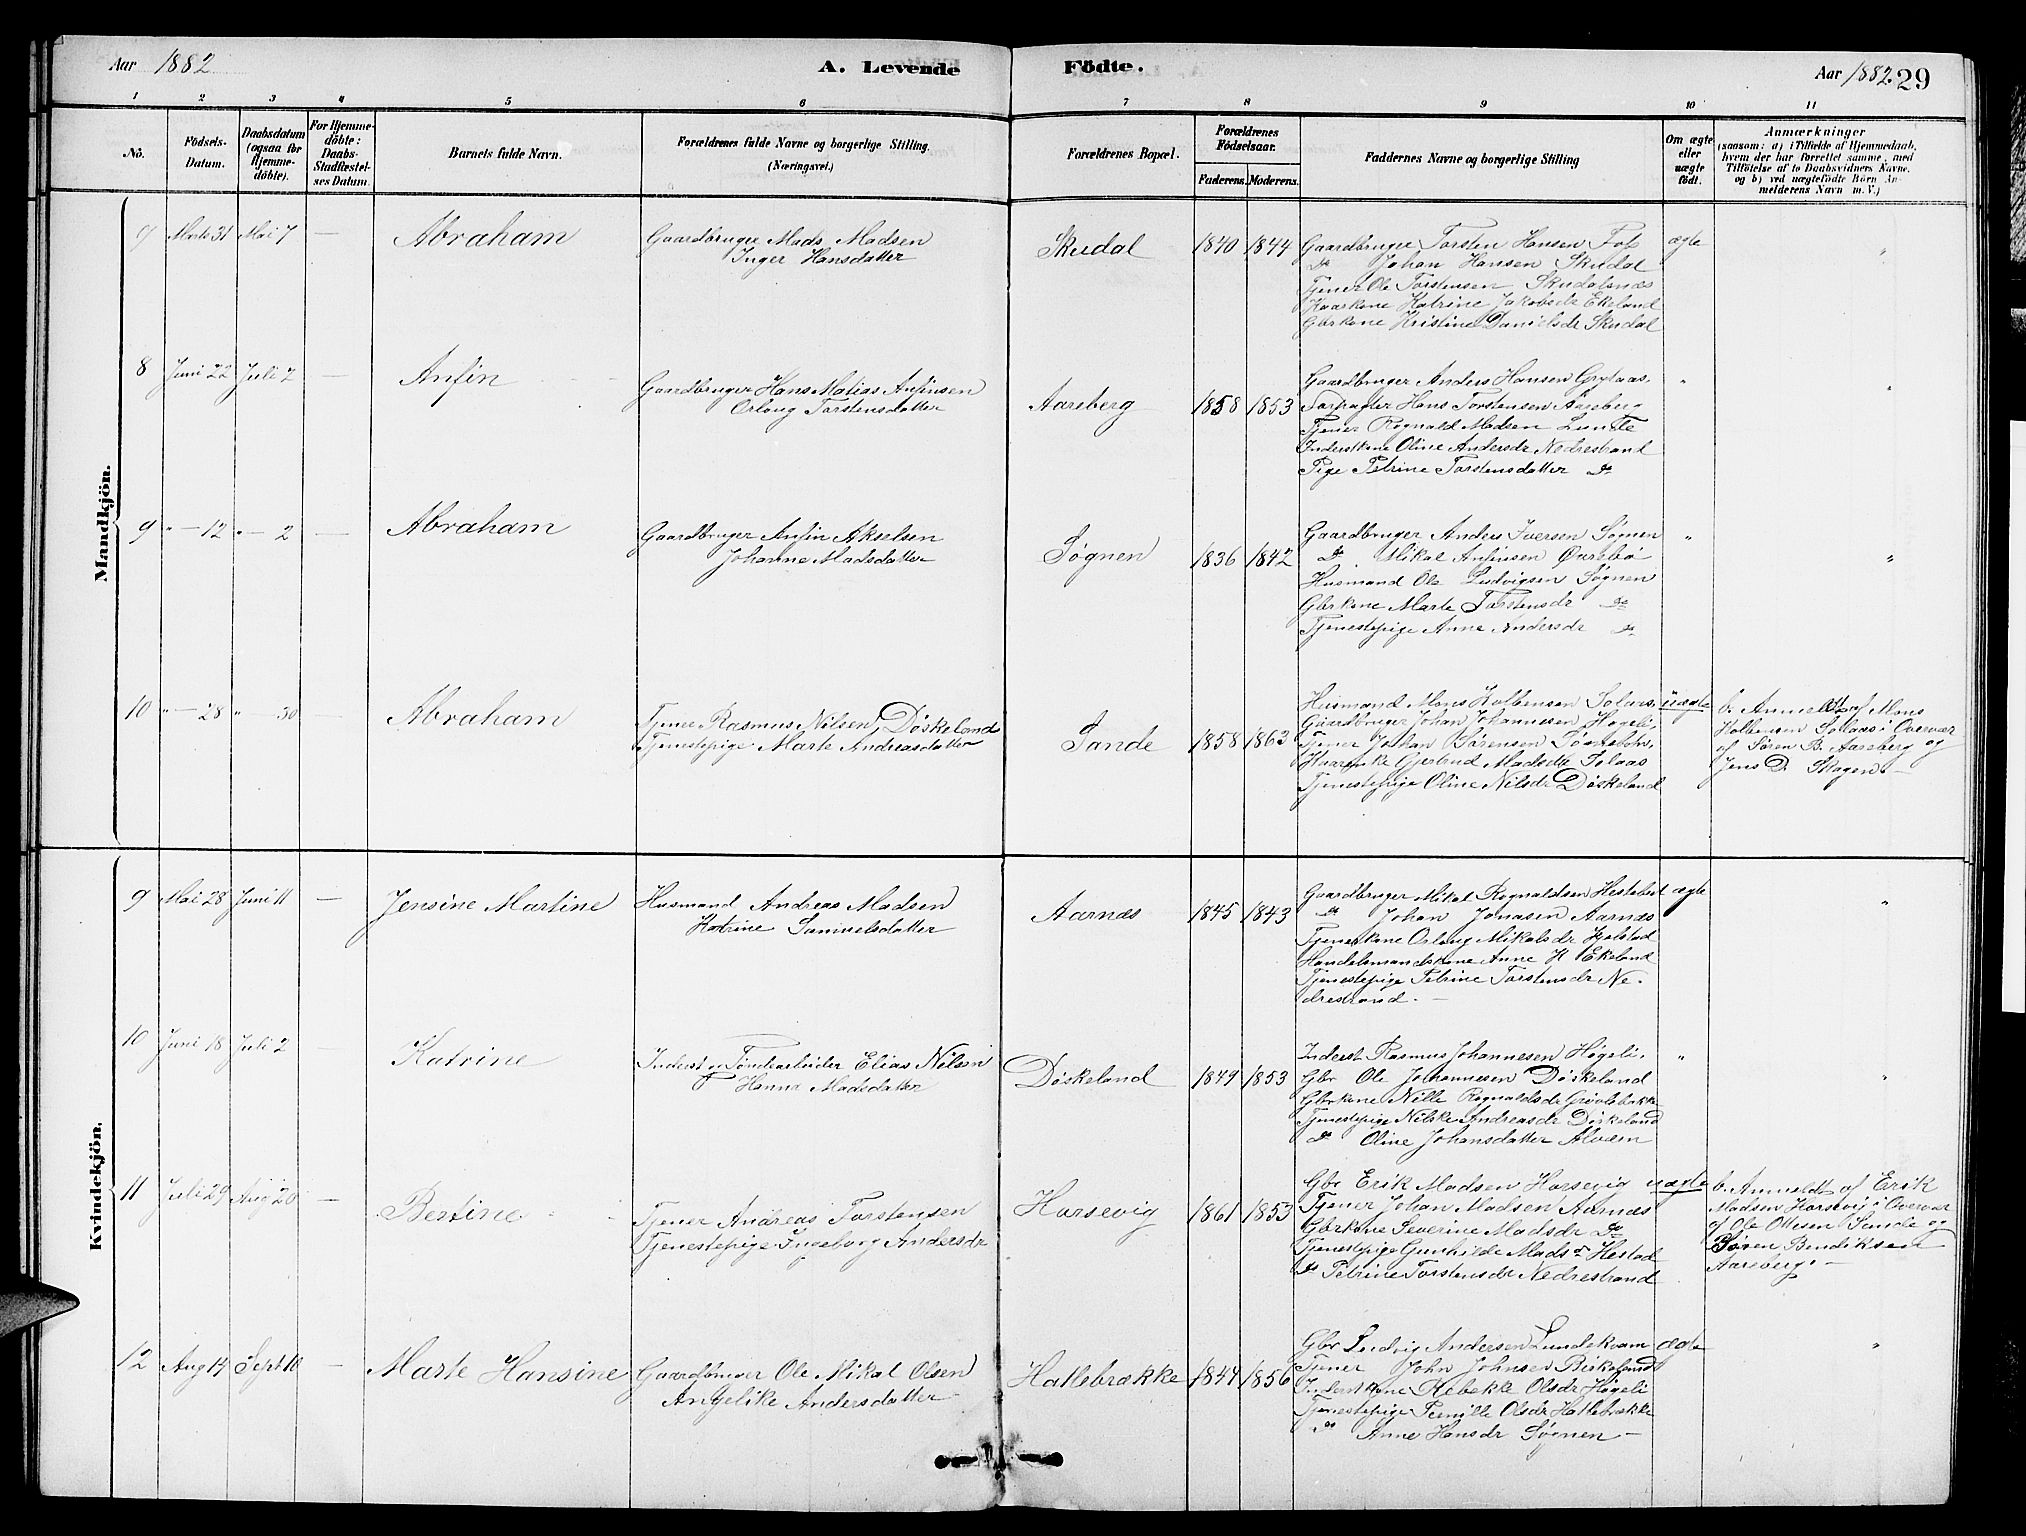 Aar 1882
A. Levende
Födte.
Aar 1882 29
1 2 3 4 5 6 7 8 9 10 11
Nô.
Födsels-
Datum.
Daabsdatum
(ogsaa for
Hjemme-
döbte).
For Hjemme-
döbte:
Daabs-
Stadfæstel-
ses Datum.
Barnets fulde Navn.
Forældrenes fulde Navne og borgerlige Stilling.
(Næringsvei.)
Forældrenes Bopæl.
Forældrenes
Födselsaar.
Faderens. Moderens.
Faddernes Navne og borgerlige Stilling
Om ægte
eller
uægte
födt.
Anmærkninger
(saasom: a) i Tilfælde af Hjemmedaab,
hvem der har forrettet samme, med
Tilföielse af to Daabsvidners Navne,
og b) ved uægtefödte Börn An-
melderens Navn m. V.)
Mandkjön.
9 Marts 31 Mai 7 — Abraham
Gaardbruger Mads Madsen
Inger Hansdatter
Skudal 1840 1844
Gaardbruger Torsten Hansen
do Johan Hansen Skudal
Tjener Ole Torstensen Skudalsnæs
Kaarkone Katrine Jakobsdr Ekeland
Gbrkone Kristine Danielsdr Skudal
ægte "
8 Juni 22 Juli 2 — Anfin
Gaardbruger Hans Matias Anfinsen
Orlaug Torstensdatter
Aareberg 1858 1853
Gaardbruger Anders Hansen Grytaas.
Forpagter Hans Torstensen Aareberg
Tjener Rognald Madsen Lunde
Inderstkone Oline Andersdr Nedrestrand
Pige Petrine Torstensdatter do
" "
9 " — 12 " — 2 — Abraham
Gaardbruger Anfin Akselsen
Johanne Madsdatter
Søgnen 1836 1842
Gaardbruger Anders Iversen Søgnen
do Mikal Anfinsen Øvrebø
Husmand Ole Ludvigsen Søgnen
Gbrkone Marte Torstensdr do
Tjenestepige Anne Andersdr do
" "
10 " — 28 " — 30 — Abraham
Tjener Rasmus Nilsen Døskeland
Tjenestepige Marte Andreasdatter
Sande 1858 1863
Husmand Mons Kolbensen Solaas.
Gaardbruger Johan Johannesen Høgeli,
Tjener Johan Sørensen
Gjertrud Madsdr Solaas
Tjenestepige Oline Nilsdr Døskeland
uægte
b. Anmeldt af Mons
Kolbensen Solaas i Overvær
af Søren B. Aareberg og
Jens D. Skagen. —
Kvindekjön.
9 Mai 28 Juni 11 — Jensine Martine
Husmand Andreas Madsen
Katrine Samuelsdatter
Aarnæs 1845 1843
Gaardbruger Mikal Rognaldsen Hestebeit
do Johan Jonasen Aarnæs
Tjenerkone Orlaug Mikalsdr
Handelsmandskone Anne K Ekeland
Tjenestepige Petrine Torstensdr Ne-
drestrand. —
ægte "
10 Juni 18 Juli 2 — Katrine
Inderst og Tøndearbeider Elias Nilsen
Hanna Madsdatter
Døskeland 1849 1853
Inderst Rasmus Johannesen Høgeli.
Gbr Ole Johannesen Døskeland
Gbrkone Nille Rognaldsdr
Tjenestepige Nilske Andreasdr Døskeland
do Oline Johansdatter Alværn
" "
11 Juli 29 Aug 20 — Bertine
Tjener Andreas Torstensen
Tjenestepige Ingeborg Andersdr
Horsevig 1861 1853
Gbr Erik Madsen Horsevig
Tjener Johan Madsen Aarnæs
Gbrkone Severine Madsdr do
Tjenestepige Gunhilde Madsdr Hestad
do Petrine Torstensdr Nedrestrand
uægte
b. Anmeldt af Erik
Madsen Horsevig i Overvær
af Ole Ottesen Sande og
Søren Bendiksen
Aareberg. —
12 Aug 14 Sept 10 — Marte Hansine
Gaardbruger Ole Mikal Olsen
Angelike Andersdatter
Hatlebrække 1847 1856
Gbr Ludvig Andersen Lundekvam
Tjener John Johnsen Birkeland
Inderstkone Rebekke Olsdr Høgeli
Tjenestepige Pernille Olsdr Hatlebrække
do Anne Hansdr Søgnen —
ægte "